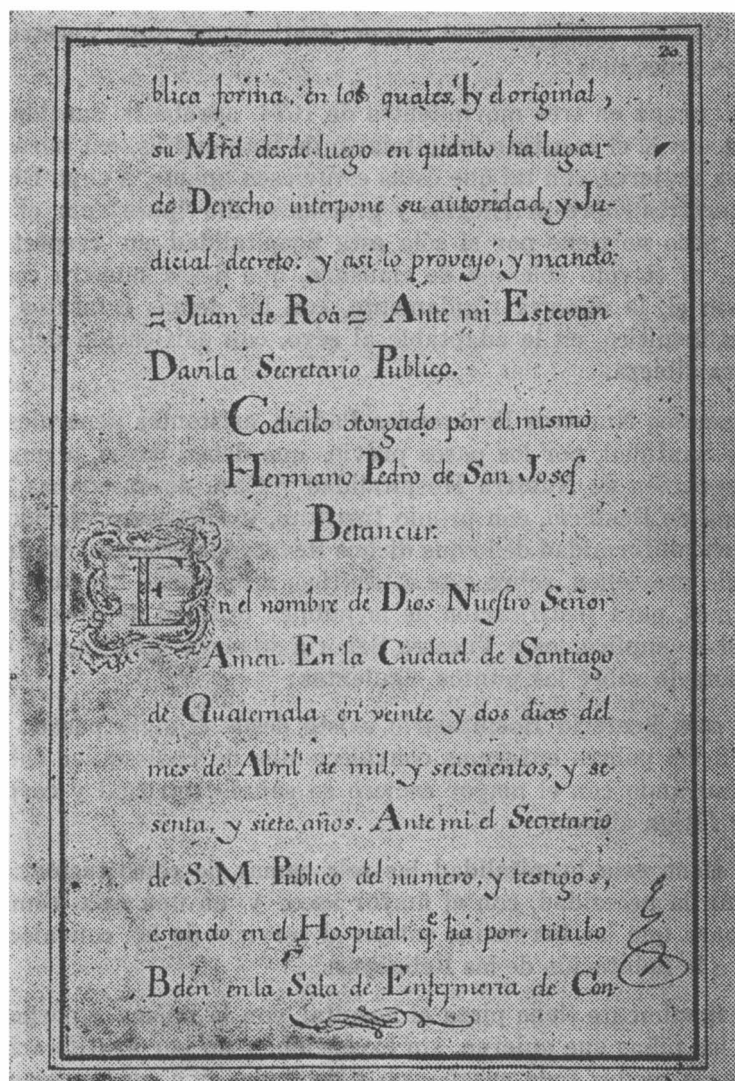 20
blica forma. en los quales, y el original,
su Mrd. desde luego en quanto ha lugar
de Derecho interpone su autoridad, y Ju-
dicial decreto: y asi lo proveyó, y mandó.
= Juan de Roa = Ante mi Estevan
Davila Secretario Publico.
Codicilo otorgado por el mismo
Hermano Pedro de San Josef
Betancur.
En el nombre de Dios Nuestro Señor
Amen. En la Ciudad de Santiago
de Guatemala en veinte y dos dias del
mes de Abril de mil, y seiscientos, y se-
senta, y siete años. Ante mi el Secretario
de S. M. Publico del numero, y testigos,
estando en el Hospital, qe. ha por titulo
Belén en la Sala de Enfermeria de Con-